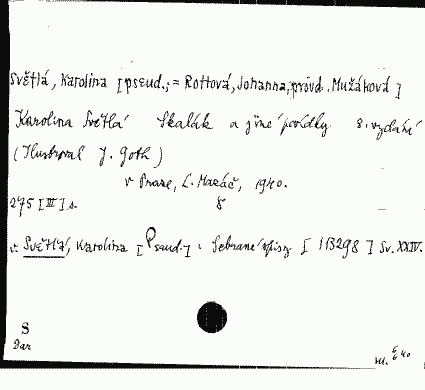 Světlá, Karolina [pseud.; = Rottová, Johanna, próvd. Mužáková]
Karolina Světlá Skalák a jiné povídky 8. vydání
(Ilustroval J. Goth)
v Praze, L. Mazáč, 1940.
275 [III] s. 8
v. Světlá, Karolina [Pseud.]: Sebrané spisy [113298] Sv. XXIV.
S
Dar
40